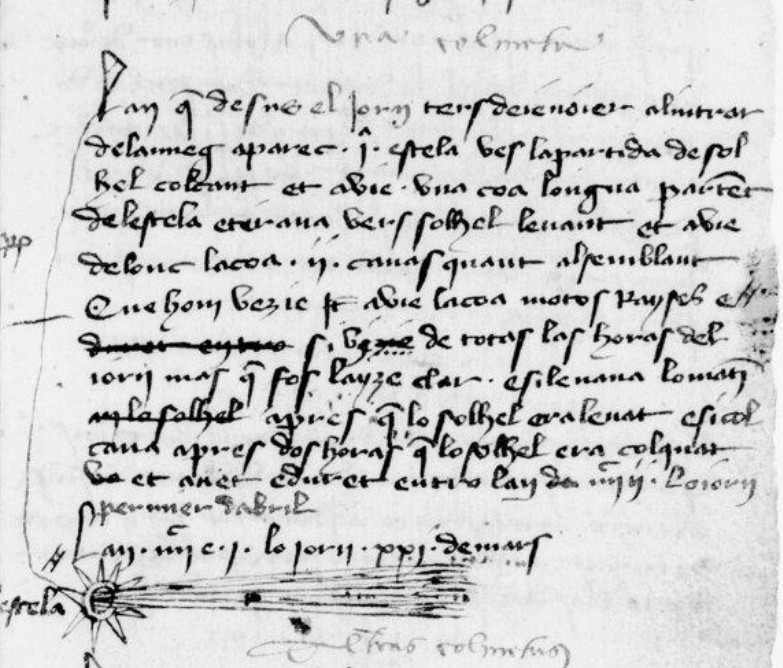 Una colmeta
Lan q̄ desus el jorn ters de ienoier al intrar
de la nueg aparec · i · estela ves la partida de sol
hel colcant et avie · una coa longua partēt
de lestela et tirava vers solhel levant et avie
de lonc la coa · ii · canas quant al semblant
Que hom vezie et avie la coa motos Rayses e
si vezie de totas las horas del
iorn mas q̄ fos layze clar · e si levava lo mati
apres q̄ lo solhel era levat e si col
cava apres dos horas q̄ lo solhel era colquat
et duret entro lan de · lo iorn
permier dabril
Lan · iiii c · i · lo iorn · xxi · de mars
estela
colmetas